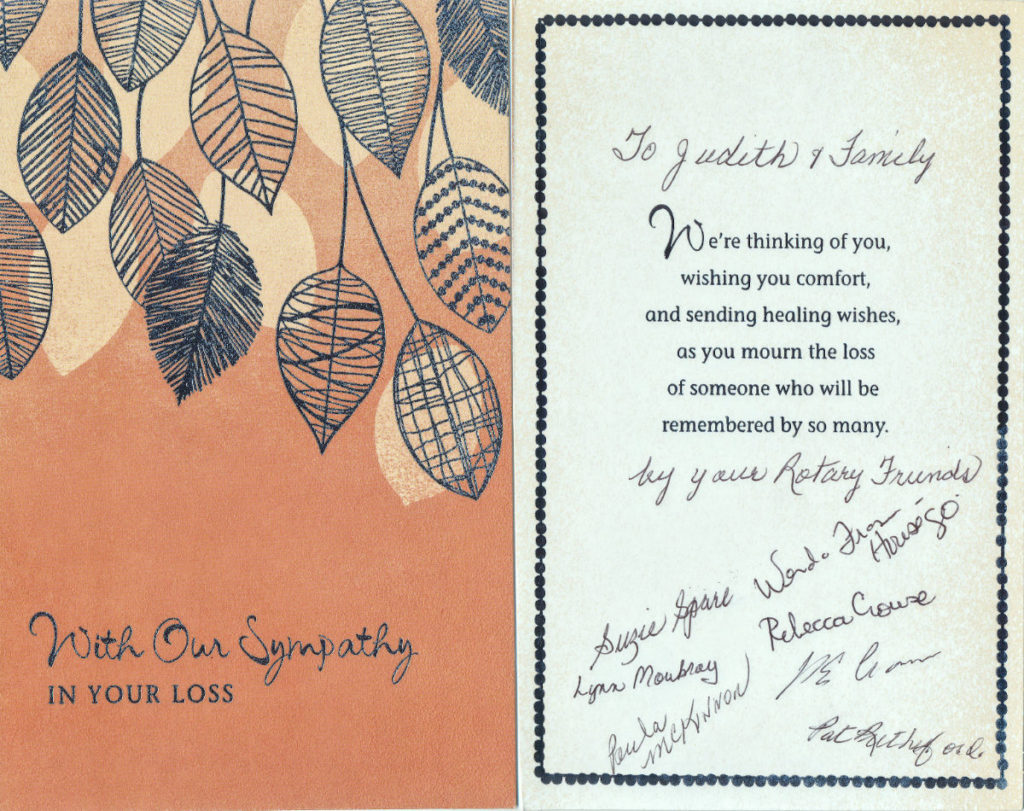 With Our Sympathy
IN YOUR LOSS
To Judith & Family
We're thinking of you,
wishing you comfort,
and sending healing wishes,
as you mourn the loss
of someone who will be
remembered by so many.
by your Rotary Friends
Wanda From
Suzie
Rebecca Crowse
Lynn Moubray
Paula
McKinnon
Pat